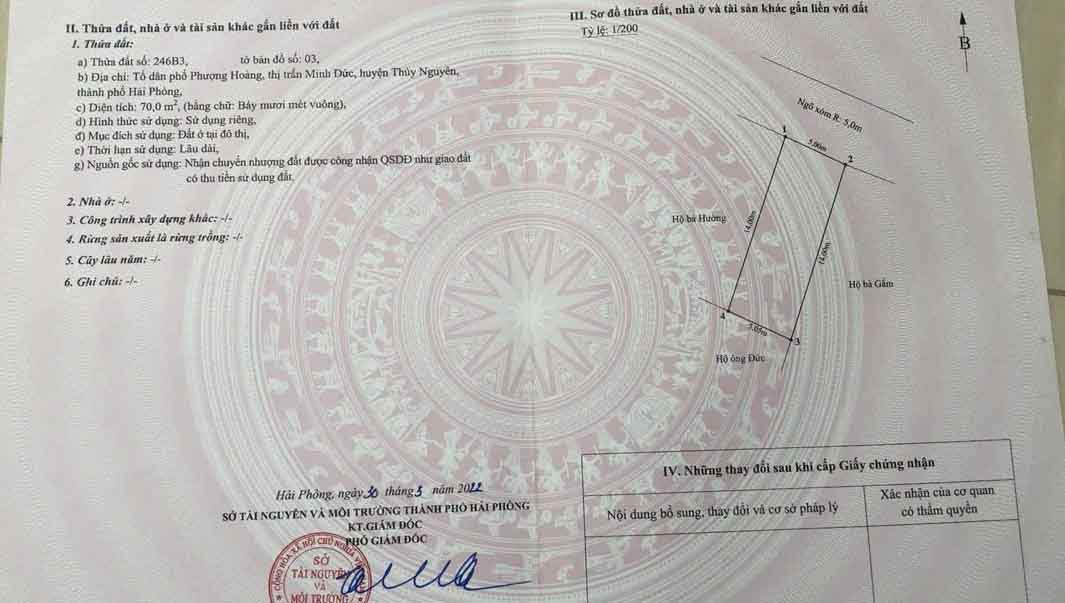 II. Thửa đất, nhà ở và tài sản khác gắn liền với đất
1. Thửa đất:
a) Thửa đất số: 246B3, tờ bản đồ số: 03,
b) Địa chỉ: Tổ dân phố Phượng Hoàng, thị trấn Minh Đức, huyện Thủy Nguyên,
thành phố Hải Phòng,
c) Diện tích: 70,0 m², (bằng chữ: Bảy mươi mét vuông),
d) Hình thức sử dụng: Sử dụng riêng,
đ) Mục đích sử dụng: Đất ở tại đô thị,
e) Thời hạn sử dụng: Lâu dài,
g) Nguồn gốc sử dụng: Nhận chuyển nhượng đất được công nhận QSDĐ như giao đất
có thu tiền sử dụng đất.
2. Nhà ở: -/-
3. Công trình xây dựng khác: -/-
4. Rừng sản xuất là rừng trồng: -/-
5. Cây lâu năm: -/-
6. Ghi chú: -/-
Hải Phòng, ngày 30 tháng 5 năm 2022
SỞ TÀI NGUYÊN VÀ MÔI TRƯỜNG THÀNH PHỐ HẢI PHÒNG
KT.GIÁM ĐỐC
PHÓ GIÁM ĐỐC
CỘNG HÒA XÃ HỘI CHỦ NGHĨA
SỞ
TÀI NGUYÊN
VÀ
MÔI TRƯỜNG
III. Sơ đồ thửa đất, nhà ở và tài sản khác gắn liền với đất
Tỷ lệ: 1/200
B
Ngõ xóm R: 5,0m
1
5,00m
2
Hộ bà Hường
14,00m
14,00m
Hộ bà Gấm
4
5,05m
3
Hộ ông Đức
IV. Những thay đổi sau khi cấp Giấy chứng nhận
Nội dung bổ sung, thay đổi và cơ sở pháp lý
Xác nhận của cơ quan
có thẩm quyền